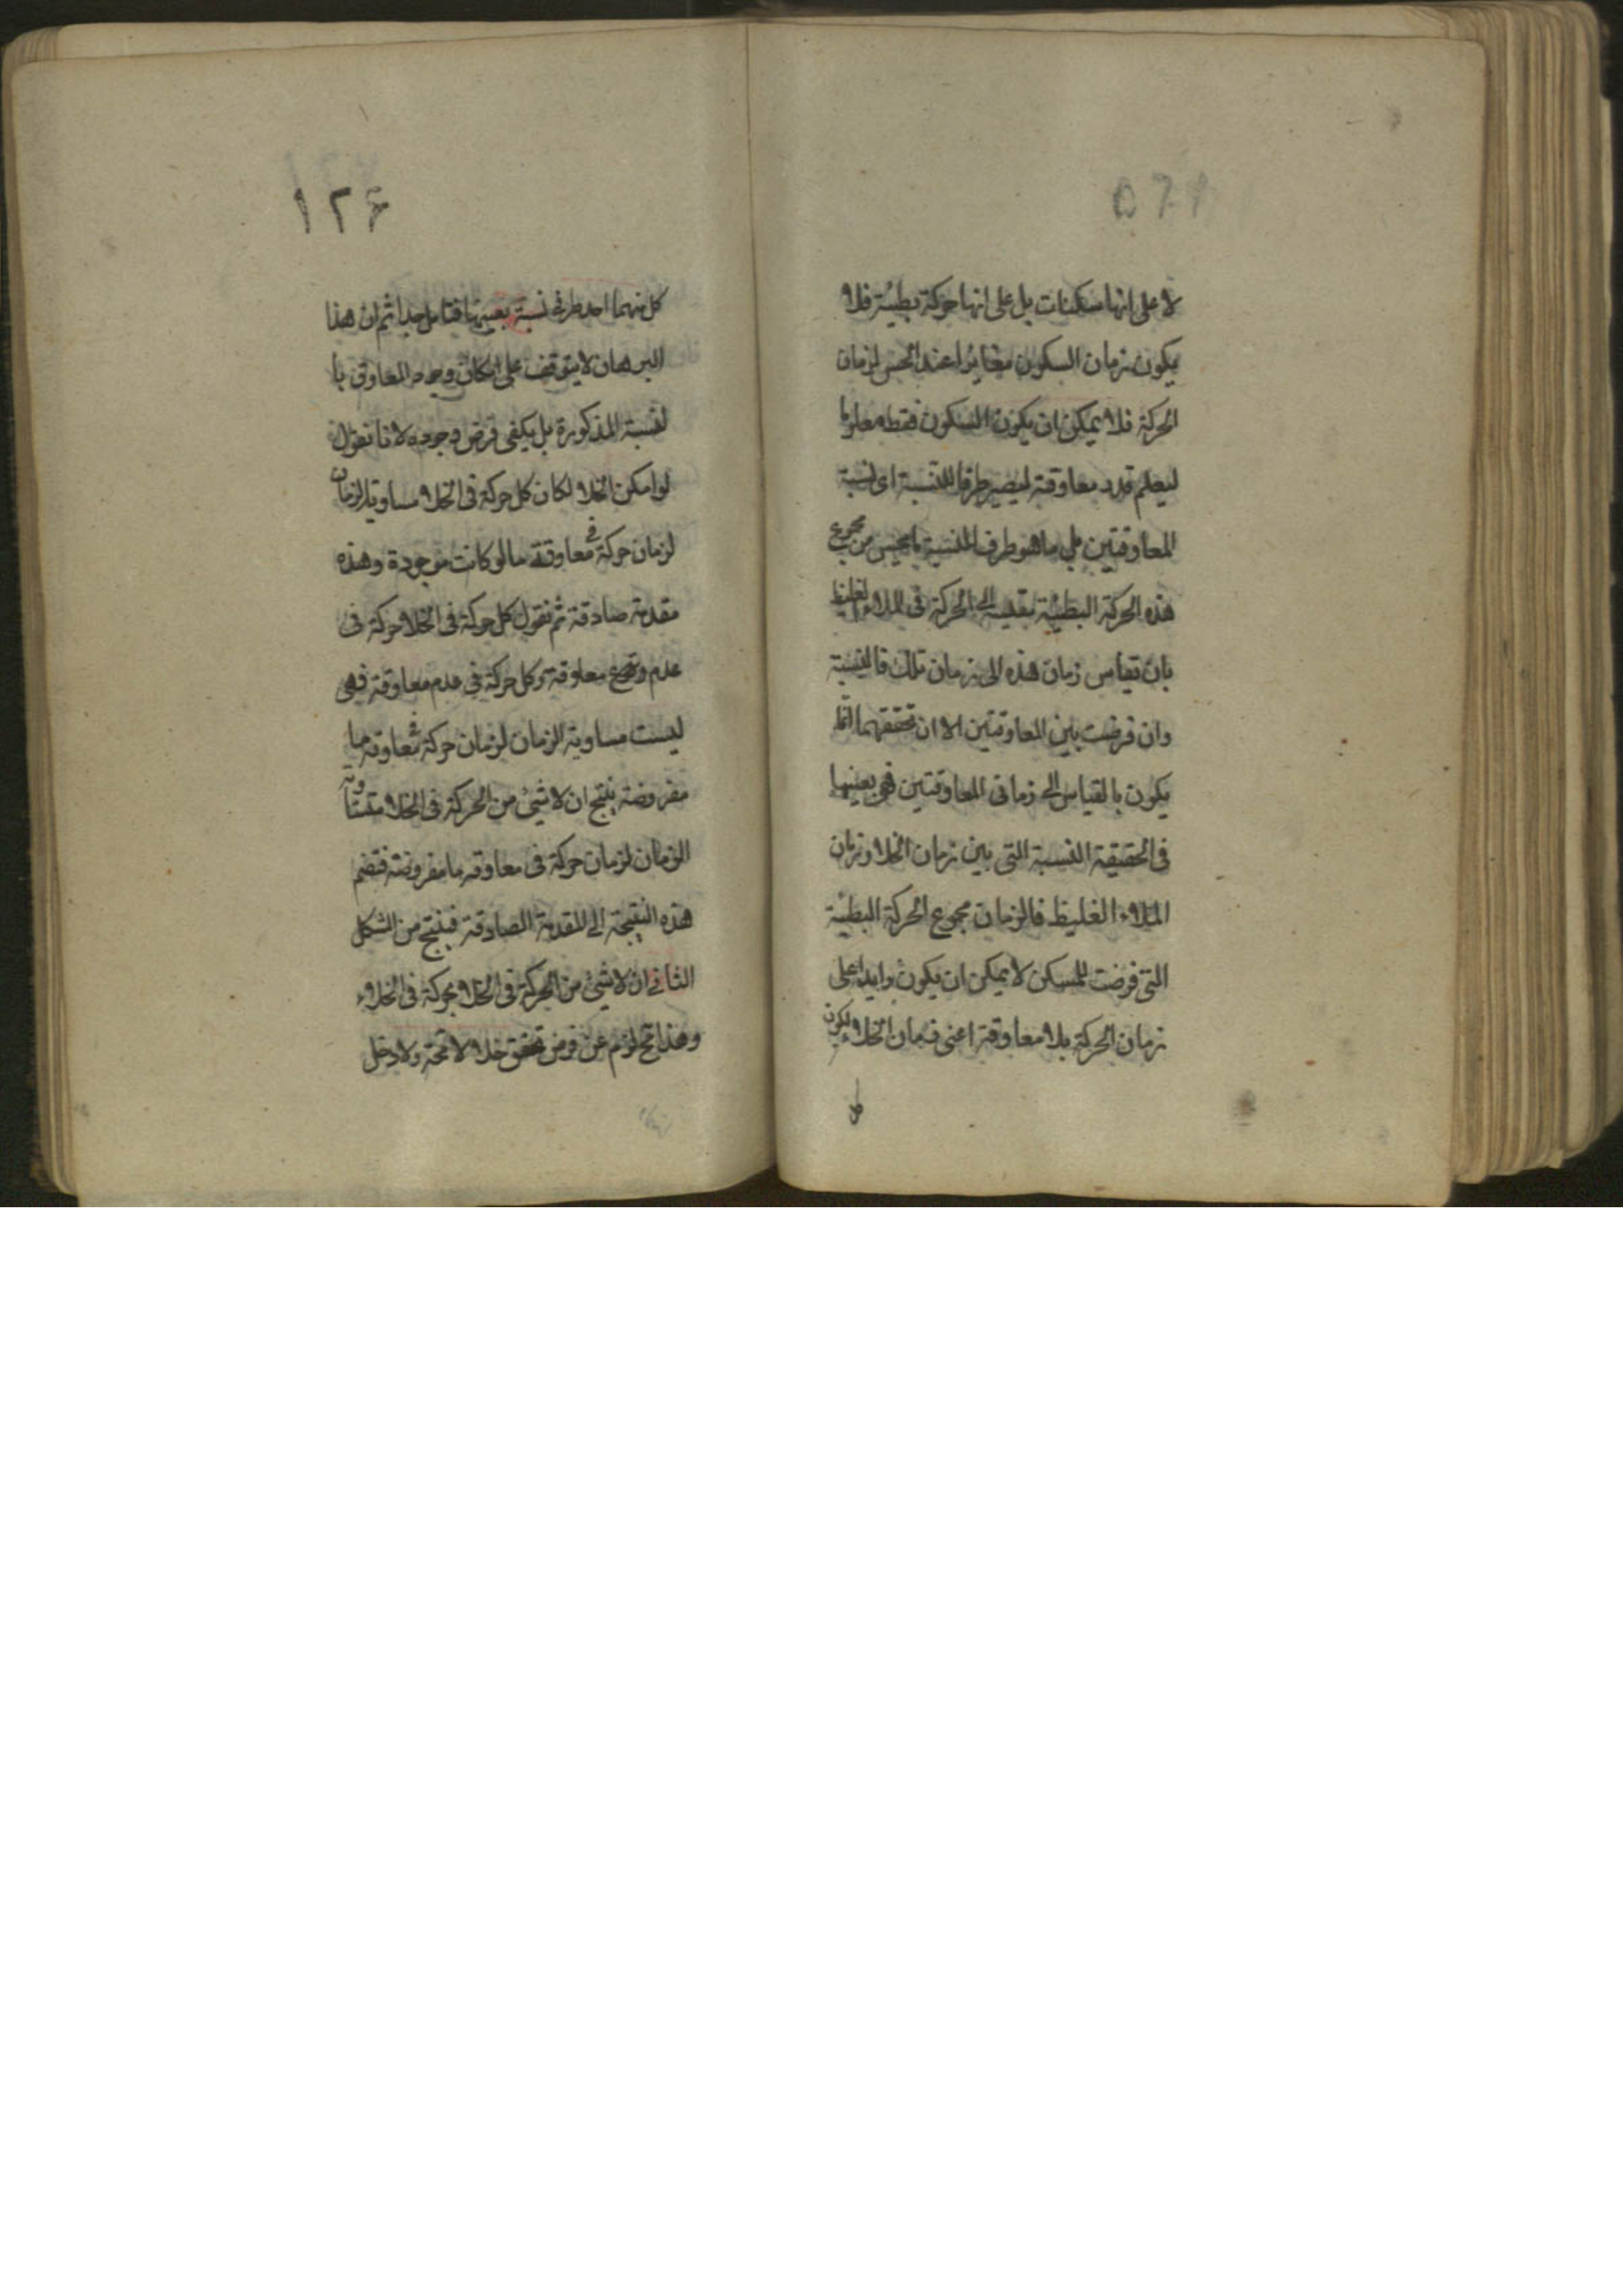 لا على انها سكنات بل على انها حركة بطيئة فلا
يكون زمان السكون مغايرا عند الحس لزمان
الحركة فلا يمكن ان يكون السكون فقط معلوما
ليعلم قدر معاوقته ليصير طرفا للنسبة اى نسبة
المعاوقتين بل ما هو طرف النسبة ما يحس من مجموع
هذه الحركة البطيئة بقياسه الى الحركة فى الملاء الغليظ
بان تقاس زمان هذه الى زمان تلك فالنسبة
وان فرضت بين المعاوقتين الا ان تحققهما انما
يكون بالقياس الى زمانى المعاوقتين فهى بعينها
فى الحقيقة النسبة التى بين زمان الخلا وزمان
الملاء الغليظ فالزمان مجموع الحركة البطيئة
التى فرضت للمسكن لا يمكن ان يكون زايدا على
زمان الحركة بلا معاوقة اعنى زمان الخلاء ليكون
١٢۶
كل منهما احد طرفى نسبة بعينها فتامل جدا ثم ان هذا
البرهان لا يتوقف على امكان وجود المعاوق با
لنسبة المذكورة بل يكفى فرض وجوده لانا نقول
لو امكن الخلا لكان كل حركة فى الخلا مساوية الزمان
لزمان حركة فى معاوقة ما لو كانت موجودة وهذه
مقدمة صادقة ثم نقول كل حركة فى الخلا حركة فى
عدم معاوقة وكل حركة فى عدم معاوقة فهى
ليست مساوية الزمان لزمان حركة فى معاوقة ما
مفروضة ينتج ان لا شيئ من الحركة فى الخلا متساوية
الزمان لزمان حركة فى معاوقة ما مفروضة فتضم
هذه النتيجة الى المقدمة الصادقة فينتج من الشكل
الثانى ان لا شيئ من الحركة فى الخلا بحركة فى الخلاء
وهذا مح لزم عن فرض تحقق خلا لا محة ولا دخل